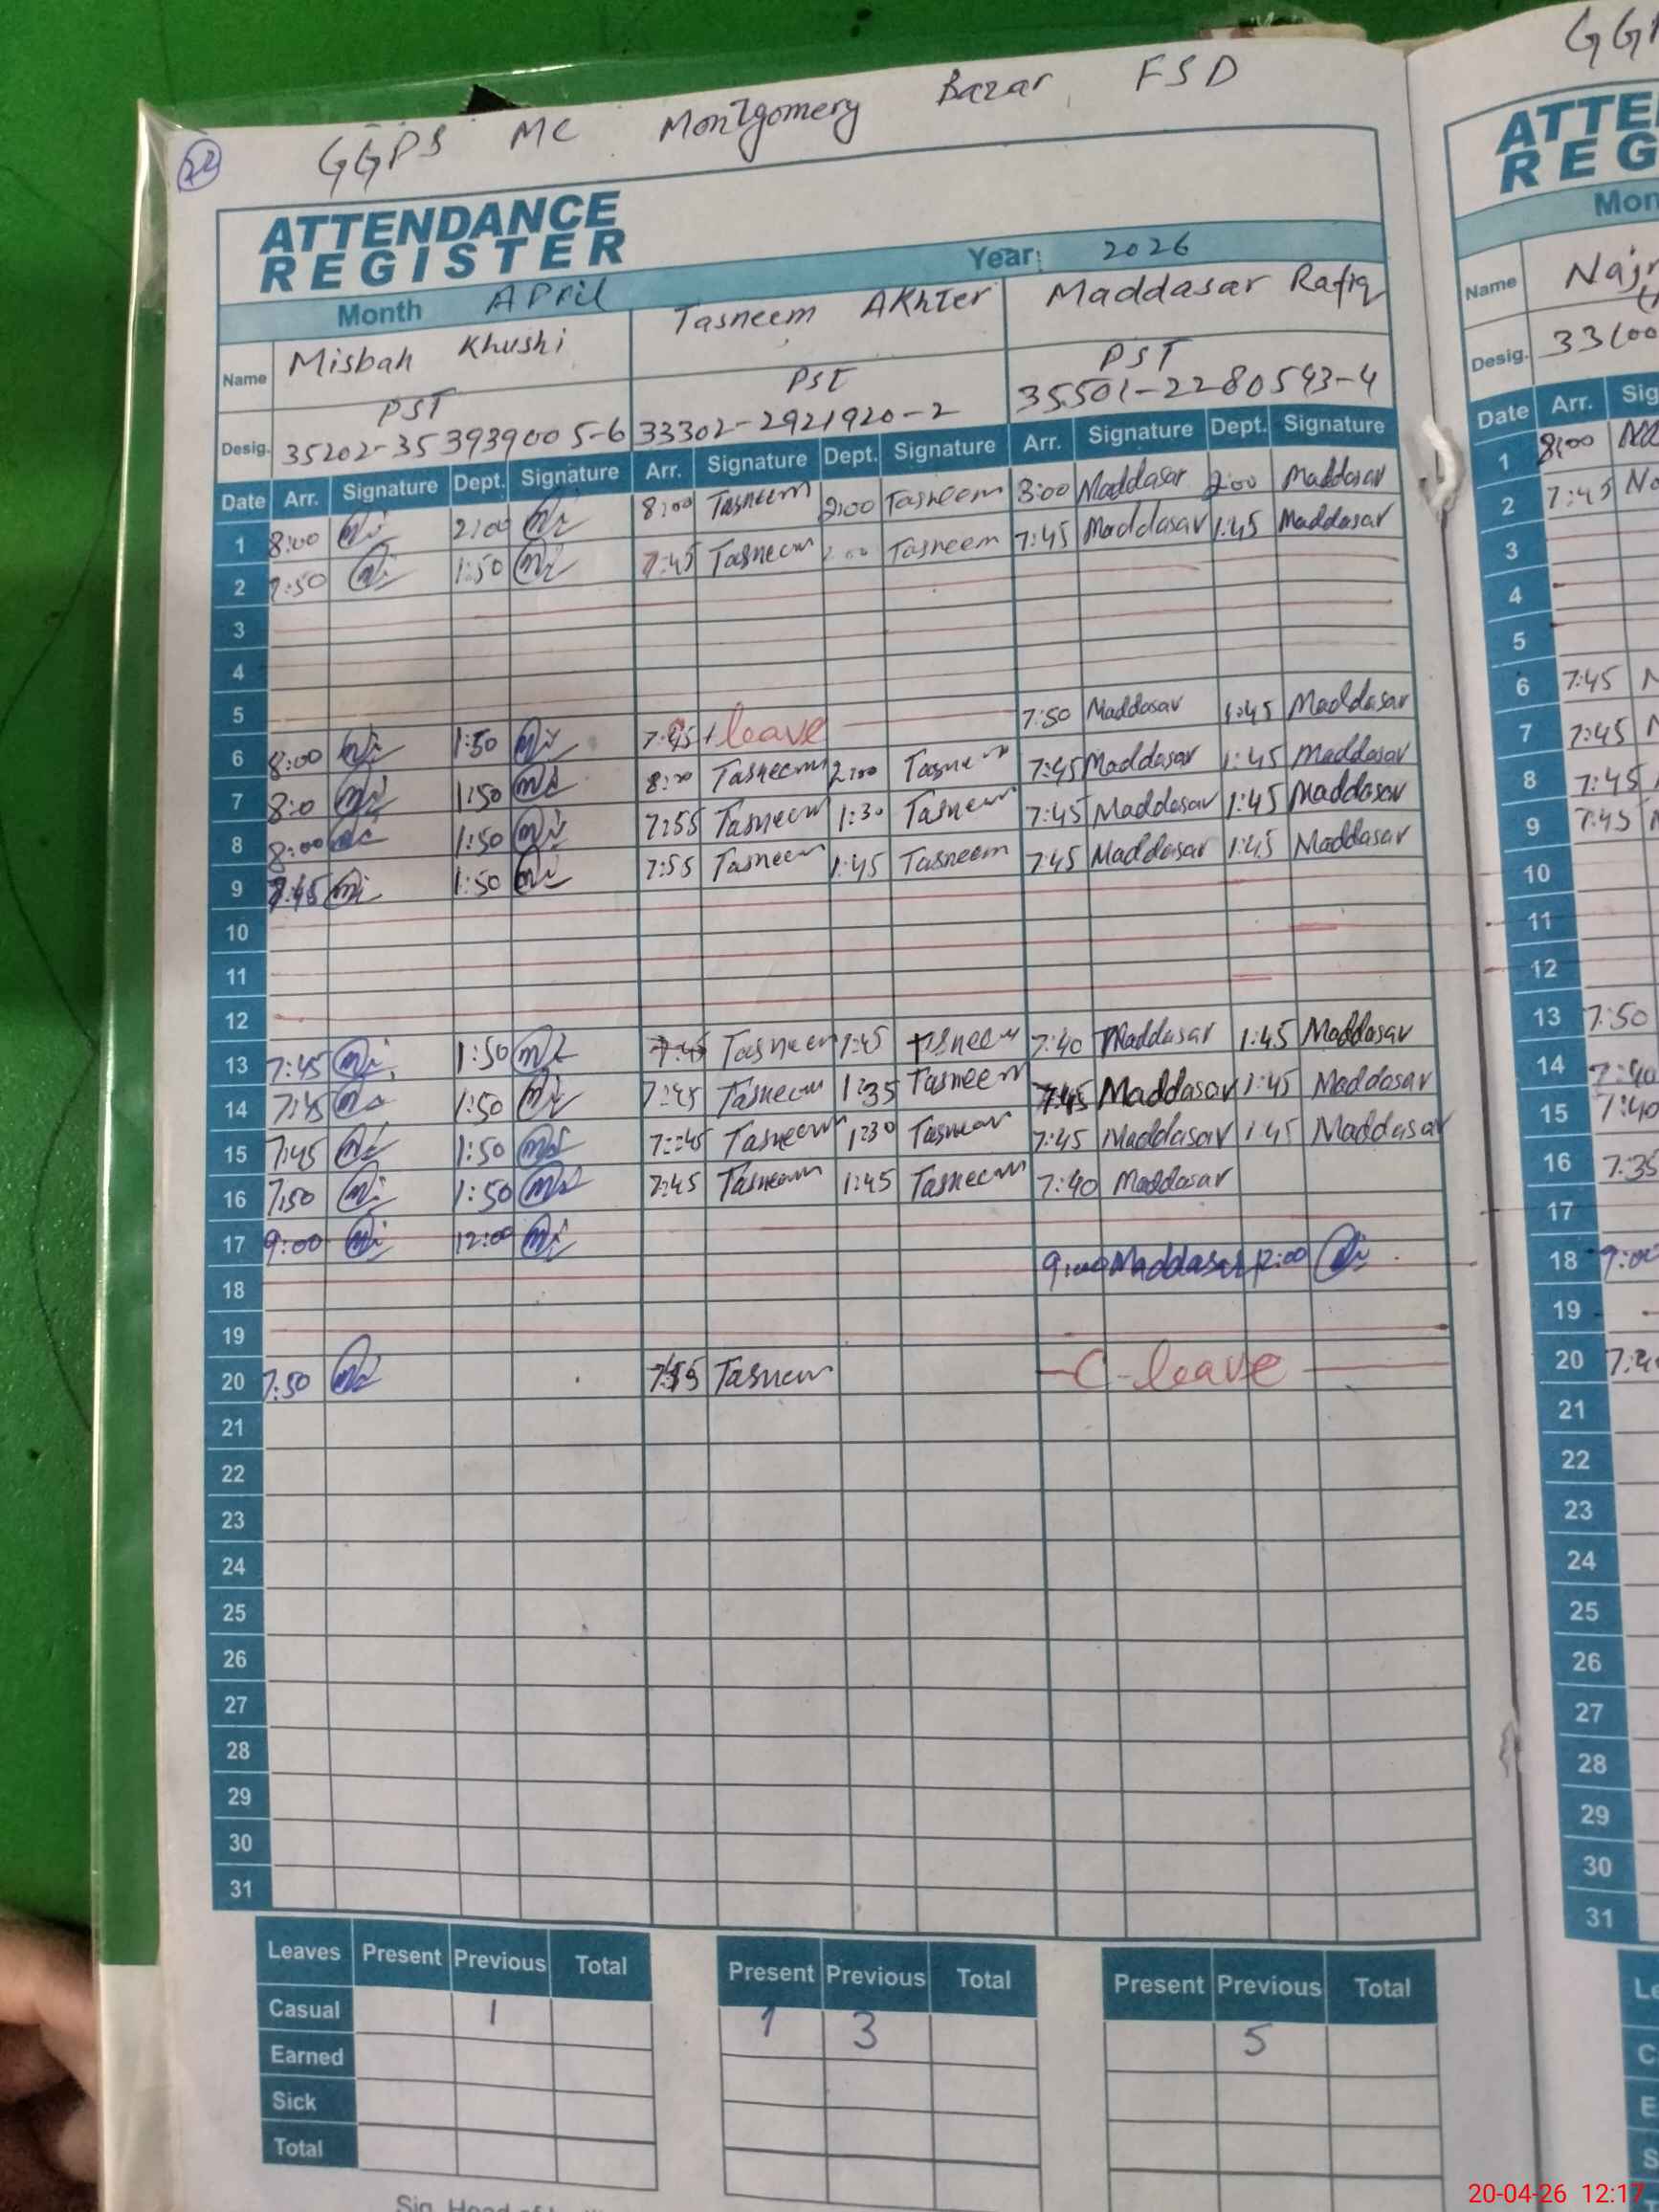 22
GGPS MC Montgomery Bazar, FSD
ATTENDANCE
REGISTER
Month April Year: 2026
Name Misbah Khushi Tasneem Akhter Maddasar Rafiq
PST PST PST
Desig. 33302-2921920-2 35501-2280543-4
Date Arr. Signature Dept. Signature Arr. Signature Dept. Signature Arr. Signature Dept. Signature
1 8:00 2:00 8:00 Tasneem 2:00 Tasneem 8:00 Maddasar 2:00 Maddasar
2 7:50 1:50 7:45 Tasneem Tasneem 7:45 Maddasar 1:45 Maddasar
3
4
5
6 8:00 1:50 leave 7:50 Maddasar 1:45 Maddasar
7 8:0 1:50 Tasneem 2:00 Tasneem 7:45 Maddasar 1:45 Maddasar
8 8:00 1:50 7:55 Tasneem 1:30 Tasneem 7:45 Maddasar 1:45 Maddasar
9 7:45 1:50 7:55 Tasneem 1:45 Tasneem 7:45 Maddasar 1:45 Maddasar
10
11
12
13 7:45 1:50 7:45 Tasneem 1:45 Tasneem 7:40 Maddasar 1:45 Maddasar
14 7:45 1:50 7:45 Tasneem 1:35 Tasneem 7:45 Maddasar 1:45 Maddasar
15 7:45 1:50 7:45 Tasneem 1:30 Tasneem 7:45 Maddasar 1:45 Maddasar
16 7:50 1:50 7:45 Tasneem 1:45 Tasneem 7:40 Maddasar
17 9:00 12:00
18 9:00 Maddasar 12:00
19
20 7:50 Tasneem C-leave
21
22
23
24
25
26
27
28
29
30
31
Leaves Present Previous Total Present Previous Total Present Previous Total
Casual 1 1 3 5
Earned
Sick
Total
ATTE
REG
Mon
Name Naj
Desig. 33100
Date Arr. Sig
1 8:00
2 7:45
3
4
5
6 7:45
7 7:45
8 7:45
9 7:45
10
11
12
13 7:50
14 7:40
15 7:40
16 7:35
17
18 9:00
19
20
21
22
23
24
25
26
27
28
29
30
31
20-04-26 12:17